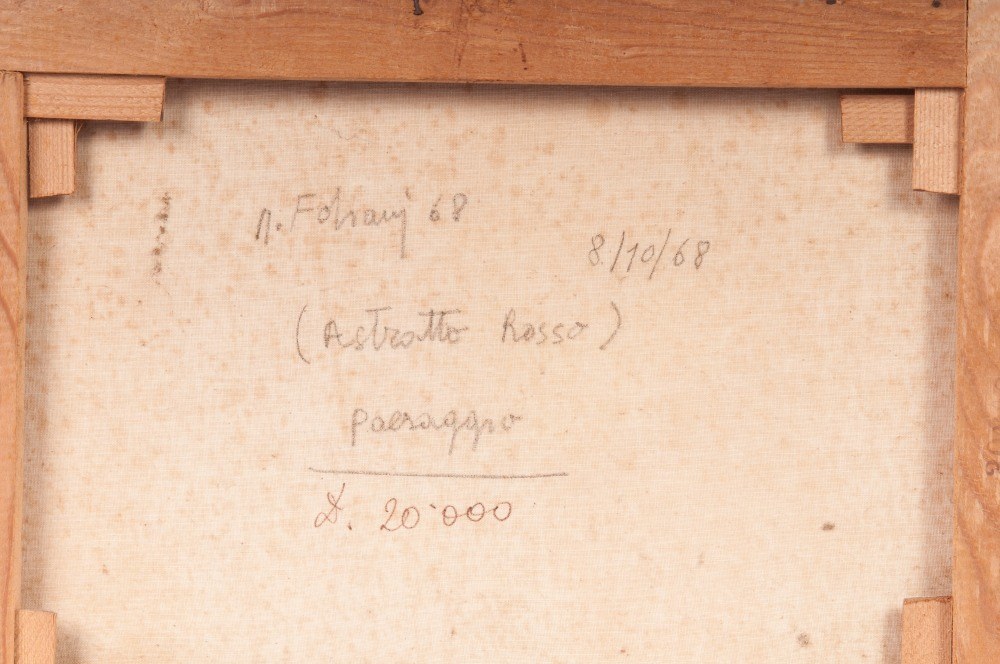 68
8/10/68
(Astratto Rosso)
paesaggio
£. 20'000